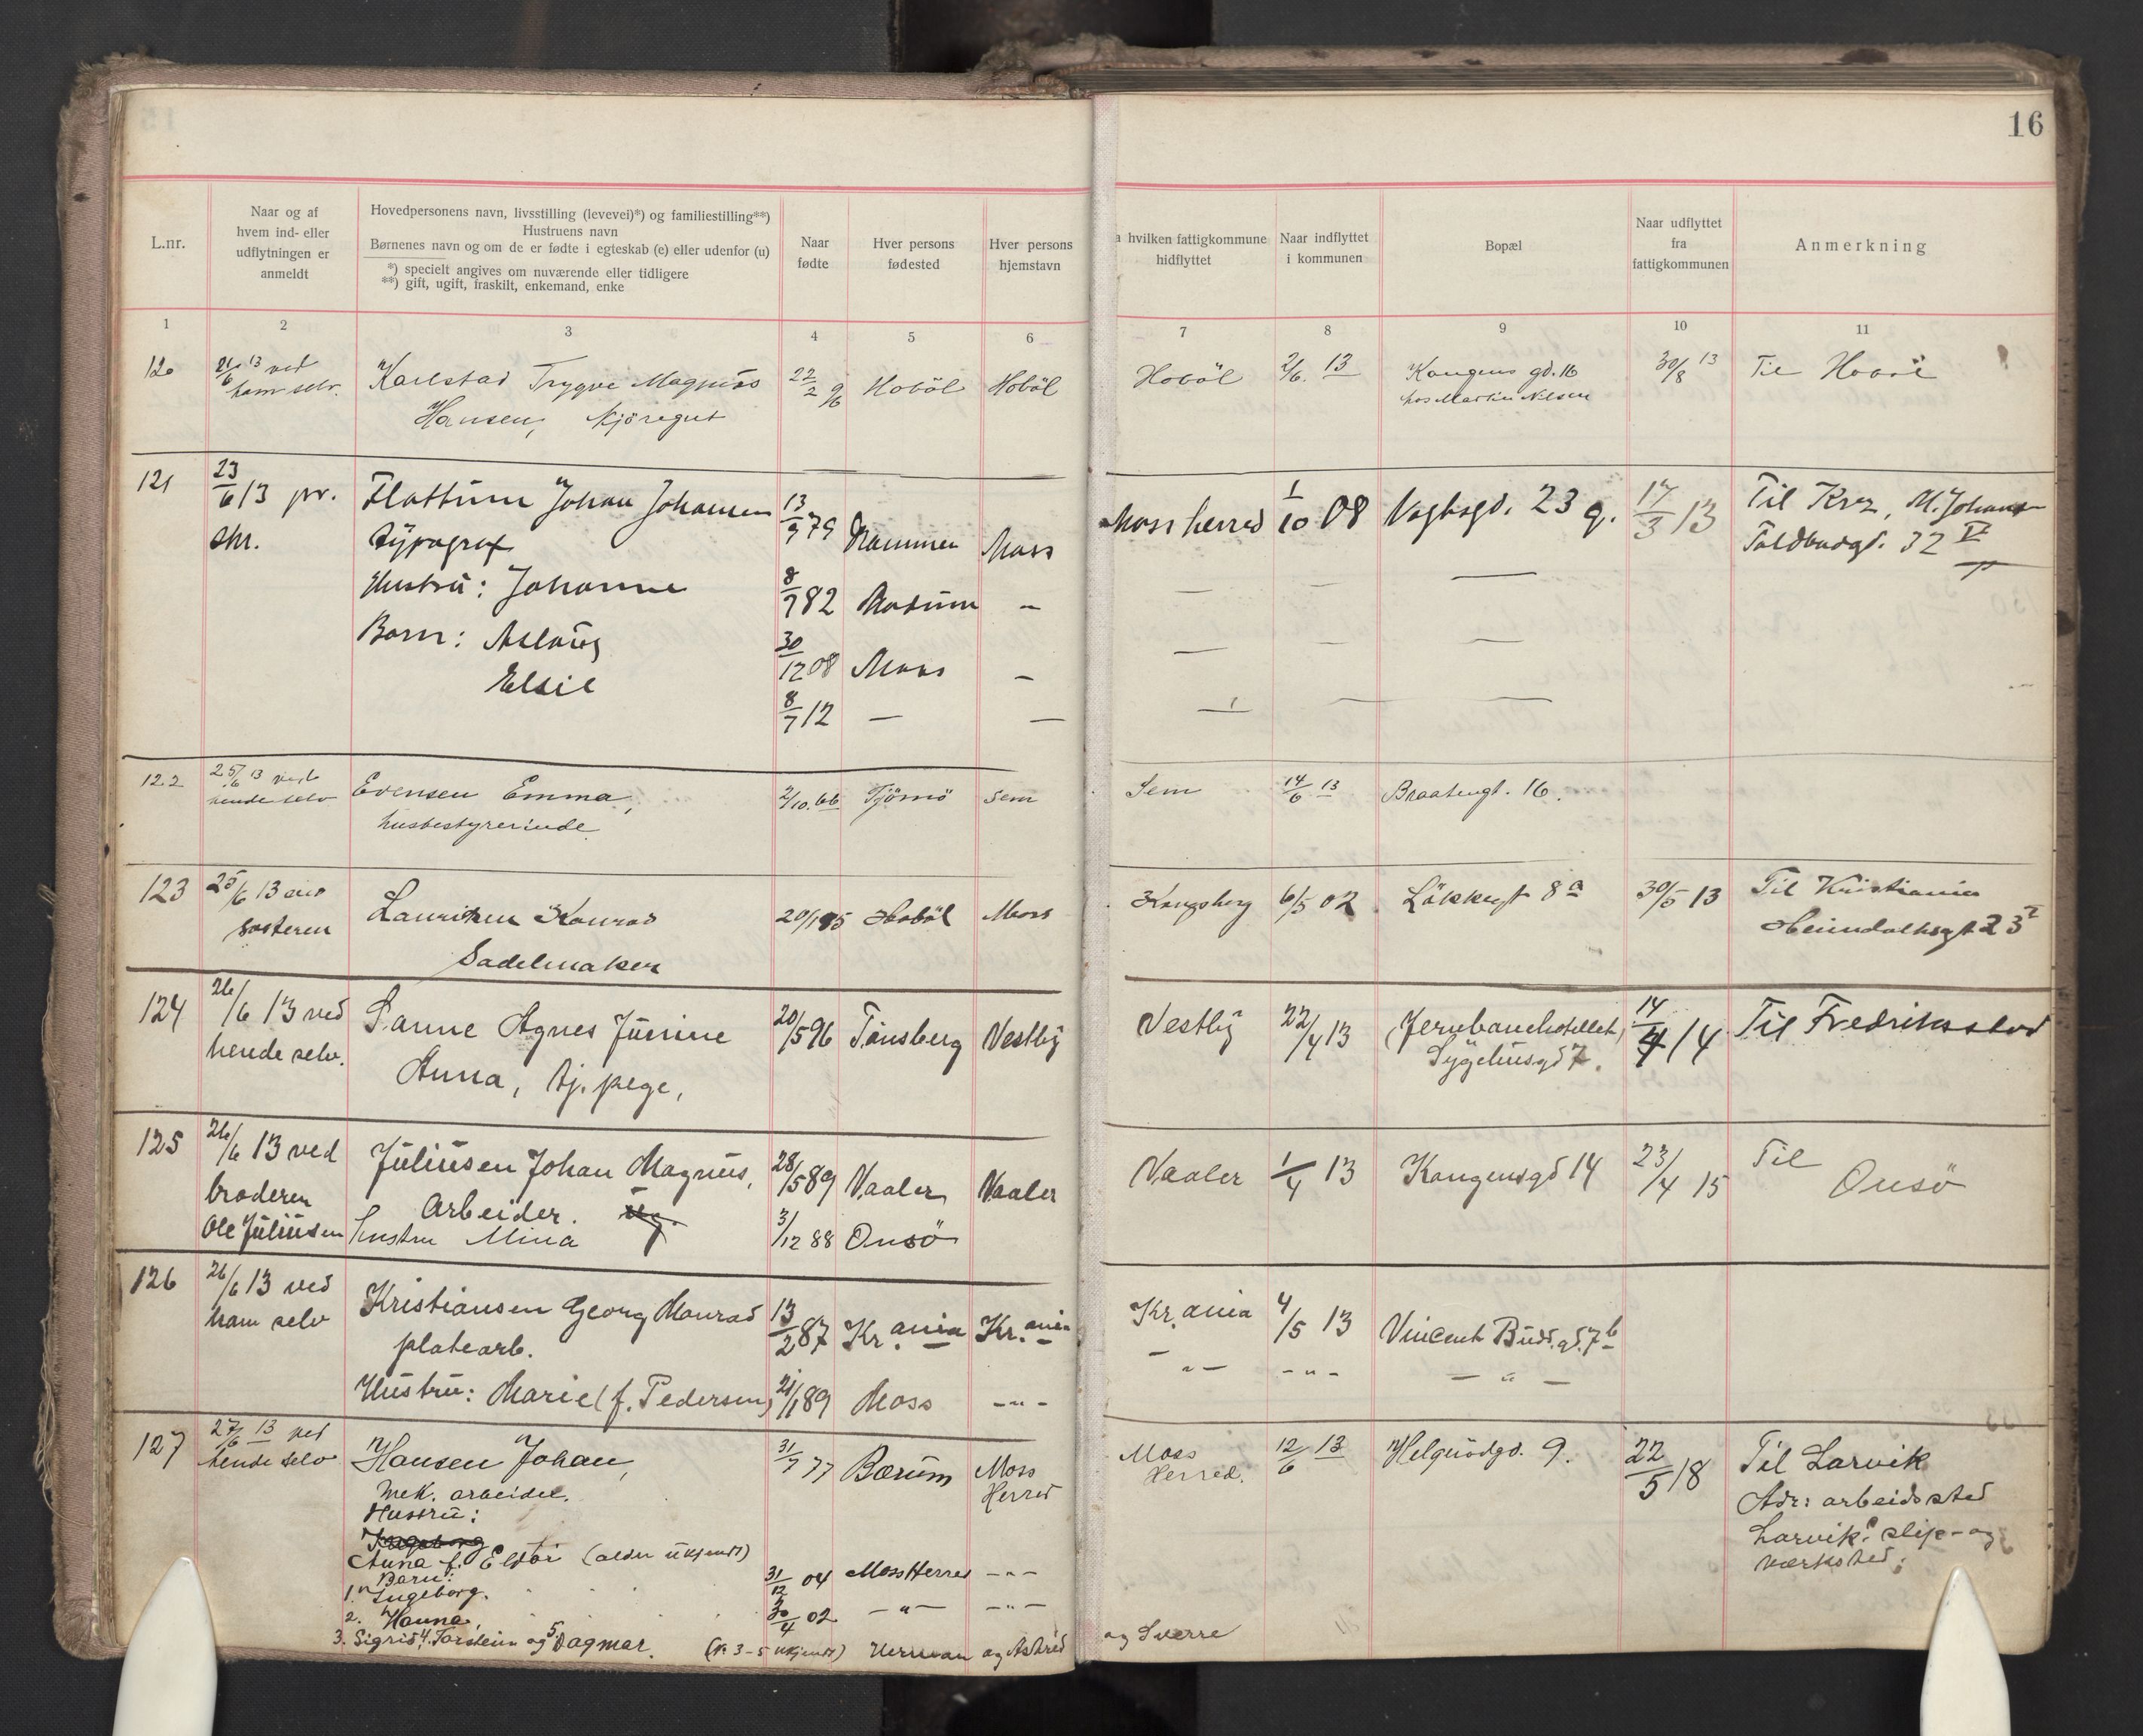 16
L.nr.
Naar og af
hvem ind- eller
udflytningen er
anmeldt
Hovedpersonens navn, livsstilling (levevei)*) og familiestilling**)
Hustruens navn
Børnenes navn og om de er fødte i egteskab (e) eller udenfor (u)
*) specielt angives om nuværende eller tidligere
**) gift, ugift, fraskilt, enkemand, enke
Naar
fødte
Hver persons
fødested
Hver persons
hjemstavn
hvilken fattigkommune
hidflyttet
Naar indflyttet
i kommunen
Bopæl
Naar udflyttet
fra
fattigkommunen
Anmerkning
1 2 3 4 5 6 7 8 9 10 11
120 21/6 13 ved Karlstad Trygve Magnus 22/2 96 Hobøl Hobøl Hobøl 2/6. 13 Kongens gd. 16 30/8 13 Til
ham selv. Hansen, kjöregut hos Martin Nilsen
121 23/6 13 pr. Flattum Johan Johansen 13/9 79 Moss herred 1/10 08 Vogtsgd. 23 g. 17/3 13 Til Krz, M. Johansen
skr. typograf Moss Toldbodgd. 32 IV
Hustru: Johanne 8/7 82 Modum –
Barn: Aslaug 30/12 08 Moss –
Elsie 8/7 12 — —
122 25/6 13 ved Evensen Emma, 2/10. 66 Tjömö Sem Sem 14/6 13 Braatengt. 16.
hende selv husbestyrerinde
123 25/6 13 ved Lauritzen Konrad 20/1 95 Hobøl Moss Kongsberg 6/5 02 Løkkegt 8 a 30/5 13 Til Kristiania
søsteren Sadelmaker Heimdalsgt 23 I
124 26/6 13 ved Sanne Agnes Jünine 20/5 96 Tönsberg Vestby Vestby 22/4 13 (Jernbanehotellet) 14/4 14 Til Fredriksstad
hende selv. Anna, tj. pige, Sygehusgd 7.
125 26/6 13 ved Juliusen Johan Magnus, 28/5 89 Vaaler Vaaler Vaaler 1/4 13 Kongensgd 14 23/4 15 Til
broderen Arbeider. ug. Onsö
Ole Juliusen hustru Mina 3/12 88 Onsö
126 26/6 13 ved Kristiansen Georg Monrad 13/2 87 Kr.ania Kr.ania Kr.ania 4/5 13 Vincent Buds.gd. 7 b
ham selv platearb. – " – – " – – " –
Hustru: Marie (f. Pedersen) 21/1 89 Moss – " –
127 27/6 13 ved Hansen Johan, 31/7 77 Bærum Moss Moss 12/6 13 Helgerödgd. 9. 22/5 18 Til Larvik
hende selv Mek. arbeider. Herred Herred. Adr: arbeidssted
Hustru: Larvik slip- og
Ingeborg værksted.
Anna f. (alder ukjendt)
Barn:
1. Ingeborg. 31/12 04 Moss Herred – " –
2. Hanna, 30/4 02 – " – – " –
3. Sigrid, 4. Torstein og 5. Dagmar. (N. 3-5 ukjendt) Herman og Astrid og Sverre